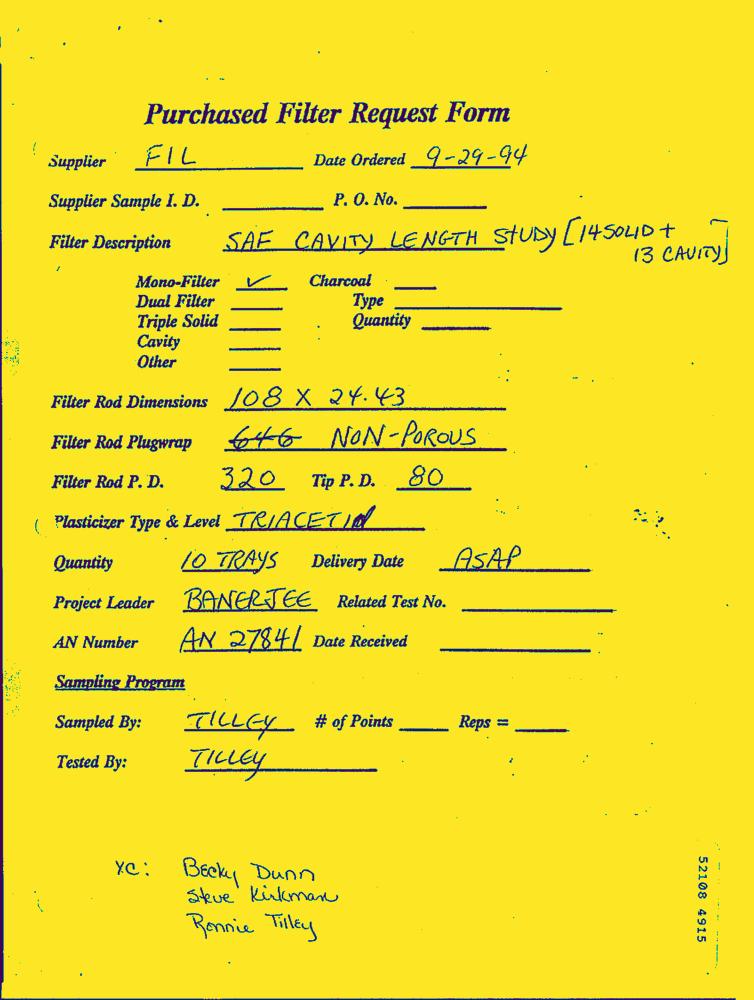 Purchased Filter Request Form
Supplier FIL Date Ordered 9-29-94
Supplier Sample I. D. P. O. No.
Filter Description SAF CAVITY LENGTH STUDY [14 SOLID +
13 CAVITY]
Mono-Filter ✓ Charcoal
Dual Filter Type
Triple Solid Quantity
Cavity
Other
Filter Rod Dimensions 108 X 24.43
Filter Rod Plugwrap 646 NON-POROUS
Filter Rod P. D. 320 Tip P. D. 80
Plasticizer Type & Level TRIACETIN
Quantity 10 TRAYS Delivery Date ASAP
Project Leader BANERJEE Related Test No.
AN Number AN 27841 Date Received
Sampling Program
Sampled By: TILLEY # of Points Reps =
Tested By: TILLEY
XC: Becky Dunn
Steve Kirkman
Ronnie Tilley
52108 4915